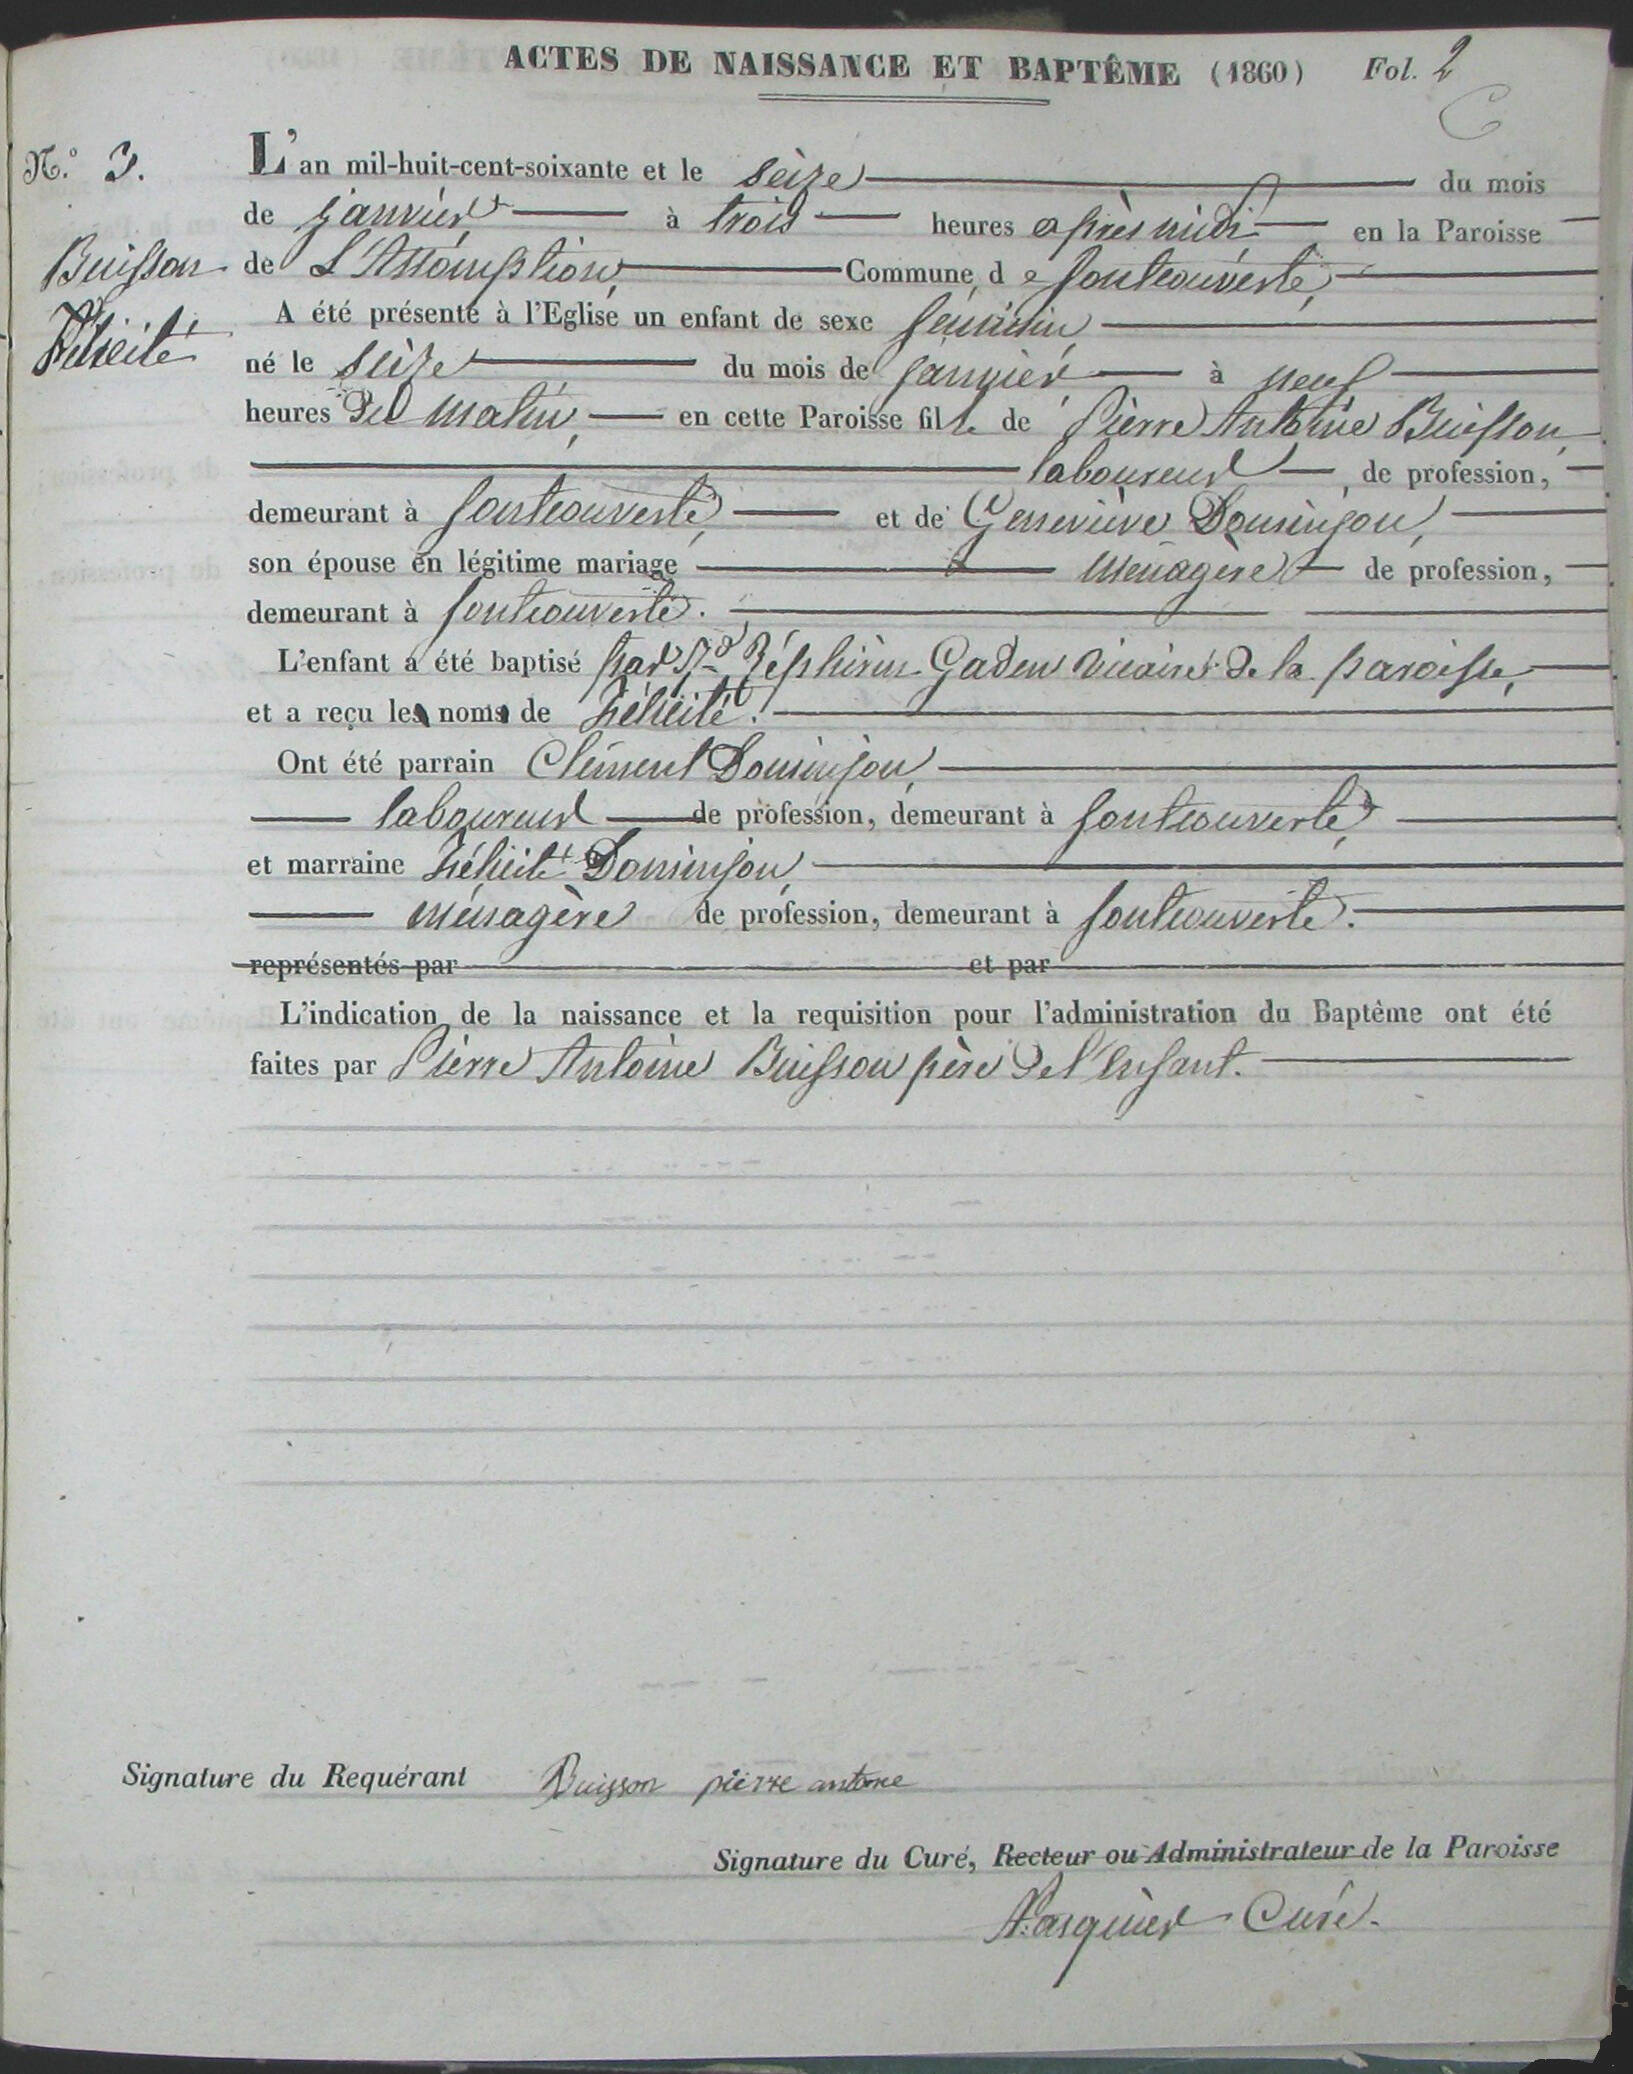 ACTES DE NAISSANCE ET BAPTÊME (1860) Fol. 2
N.º 3.
L'an mil-huit-cent-soixante et le seize du mois
de janvier à trois heures après midi en la Paroisse
Buisson
de L'Assomption, Commune de fontcouverte,
Félicité
A été présenté à l'Eglise un enfant de sexe féminin
né le seize du mois de janvier à neuf
heures du matin, en cette Paroisse fille de Pierre Antoine Buisson,
laboureur, de profession,
demeurant à fontcouverte, et de Geneviève Dominjon,
son épouse en légitime mariage ménagère de profession,
demeurant à fontcouverte.
L'enfant a été baptisé par Rd Zéphirin Gaden vicaire de la paroisse,
et a reçu les noms de Félicité.
Ont été parrain Clément Dominjon,
laboureur de profession, demeurant à fontcouverte,
et marraine Félicité Dominjon,
ménagère de profession, demeurant à fontcouverte.
représentés par et par
L'indication de la naissance et la requisition pour l'administration du Baptème ont été
faites par Pierre Antoine Buisson père de l'enfant.
Signature du Requérant Buisson pierre antoine
Signature du Curé, Recteur ou Administrateur de la Paroisse
Pasquier Curé.